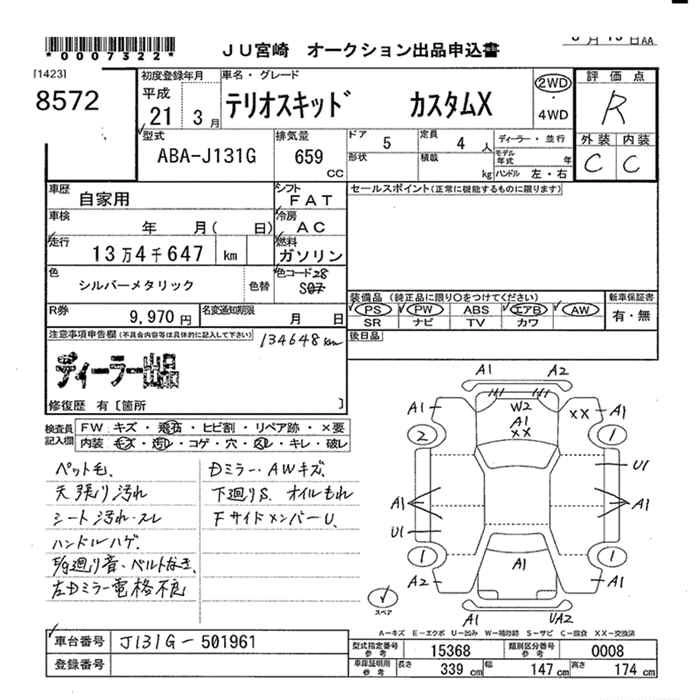 *0007322*
JU宮崎 オークション出品申込書
月 15日AA
[1423]
8572
初度登録年月
平成
21 3 月
車名・グレード
テリオスキッド カスタムX
2WD
・
4WD
評価点
R
外装 内装
C C
型式
ABA-J131G
排気量
659
CC
ドア 5
定員 4 人
形状
積載 kg
ディーラー・並行
モデル年式 年
ハンドル 左・右
車歴 自家用
シフト FAT
車検 年 月( 日)
冷房 AC
走行 13万4千647 km
燃料 ガソリン
色 シルバーメタリック 色替
色コード 28
S07
R券 9,970 円
名変通知期限 月 日
セールスポイント(正常に機能するものに限ります)
装備品 (純正品に限り○をつけてください)
PS PW ABS エアB AW
SR ナビ TV カワ
新車保証書
有・無
後日品
注意事項申告欄(不具合内容等は具体的に記入して下さい)
134648km
ディーラー出品
修復歴 有〔箇所 〕
検査員記入欄
FW キズ・飛石・ヒビ割・リペア跡・×要
内装 キズ・汚レ・コゲ・穴・スレ・キレ・破レ
ペット毛、
天張り汚れ
シート汚れ・スレ
ハンドルハゲ、
左Dミラー電格不良
Dミラー・AWキズ、
下廻りS、オイルもれ
FサイドメンバーU、
A1 A2
A1 W2 A1 XX XX A1
2 1
U1
A1 A1
U1
1 1
A2 A1 A1
A1 UA2
スペア
A-キズ E-エクボ U-凹み W-補修跡 S-サビ C-腐食 XX-交換済
車台番号 J131G-501961
登録番号
型式指定番号 参考 15368
類別区分番号 参考 0008
車庫証明用 参考 長さ 339 cm 幅 147 cm 高さ 174 cm